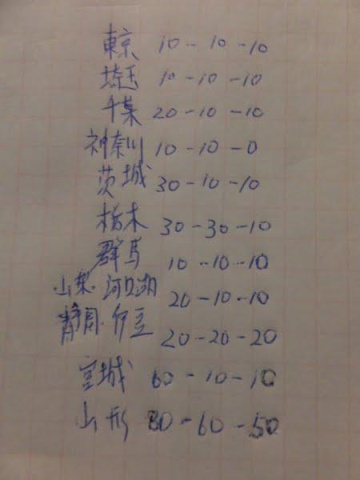 東京 10-10-10
埼玉 10-10-10
千葉 20-10-10
神奈川 10-10-0
茨城 30-10-10
栃木 30-30-10
群馬 10-10-10
山梨.河口湖 20-10-10
静岡.伊豆 20-20-20
宮城 60-10-10
山形 80-60-50